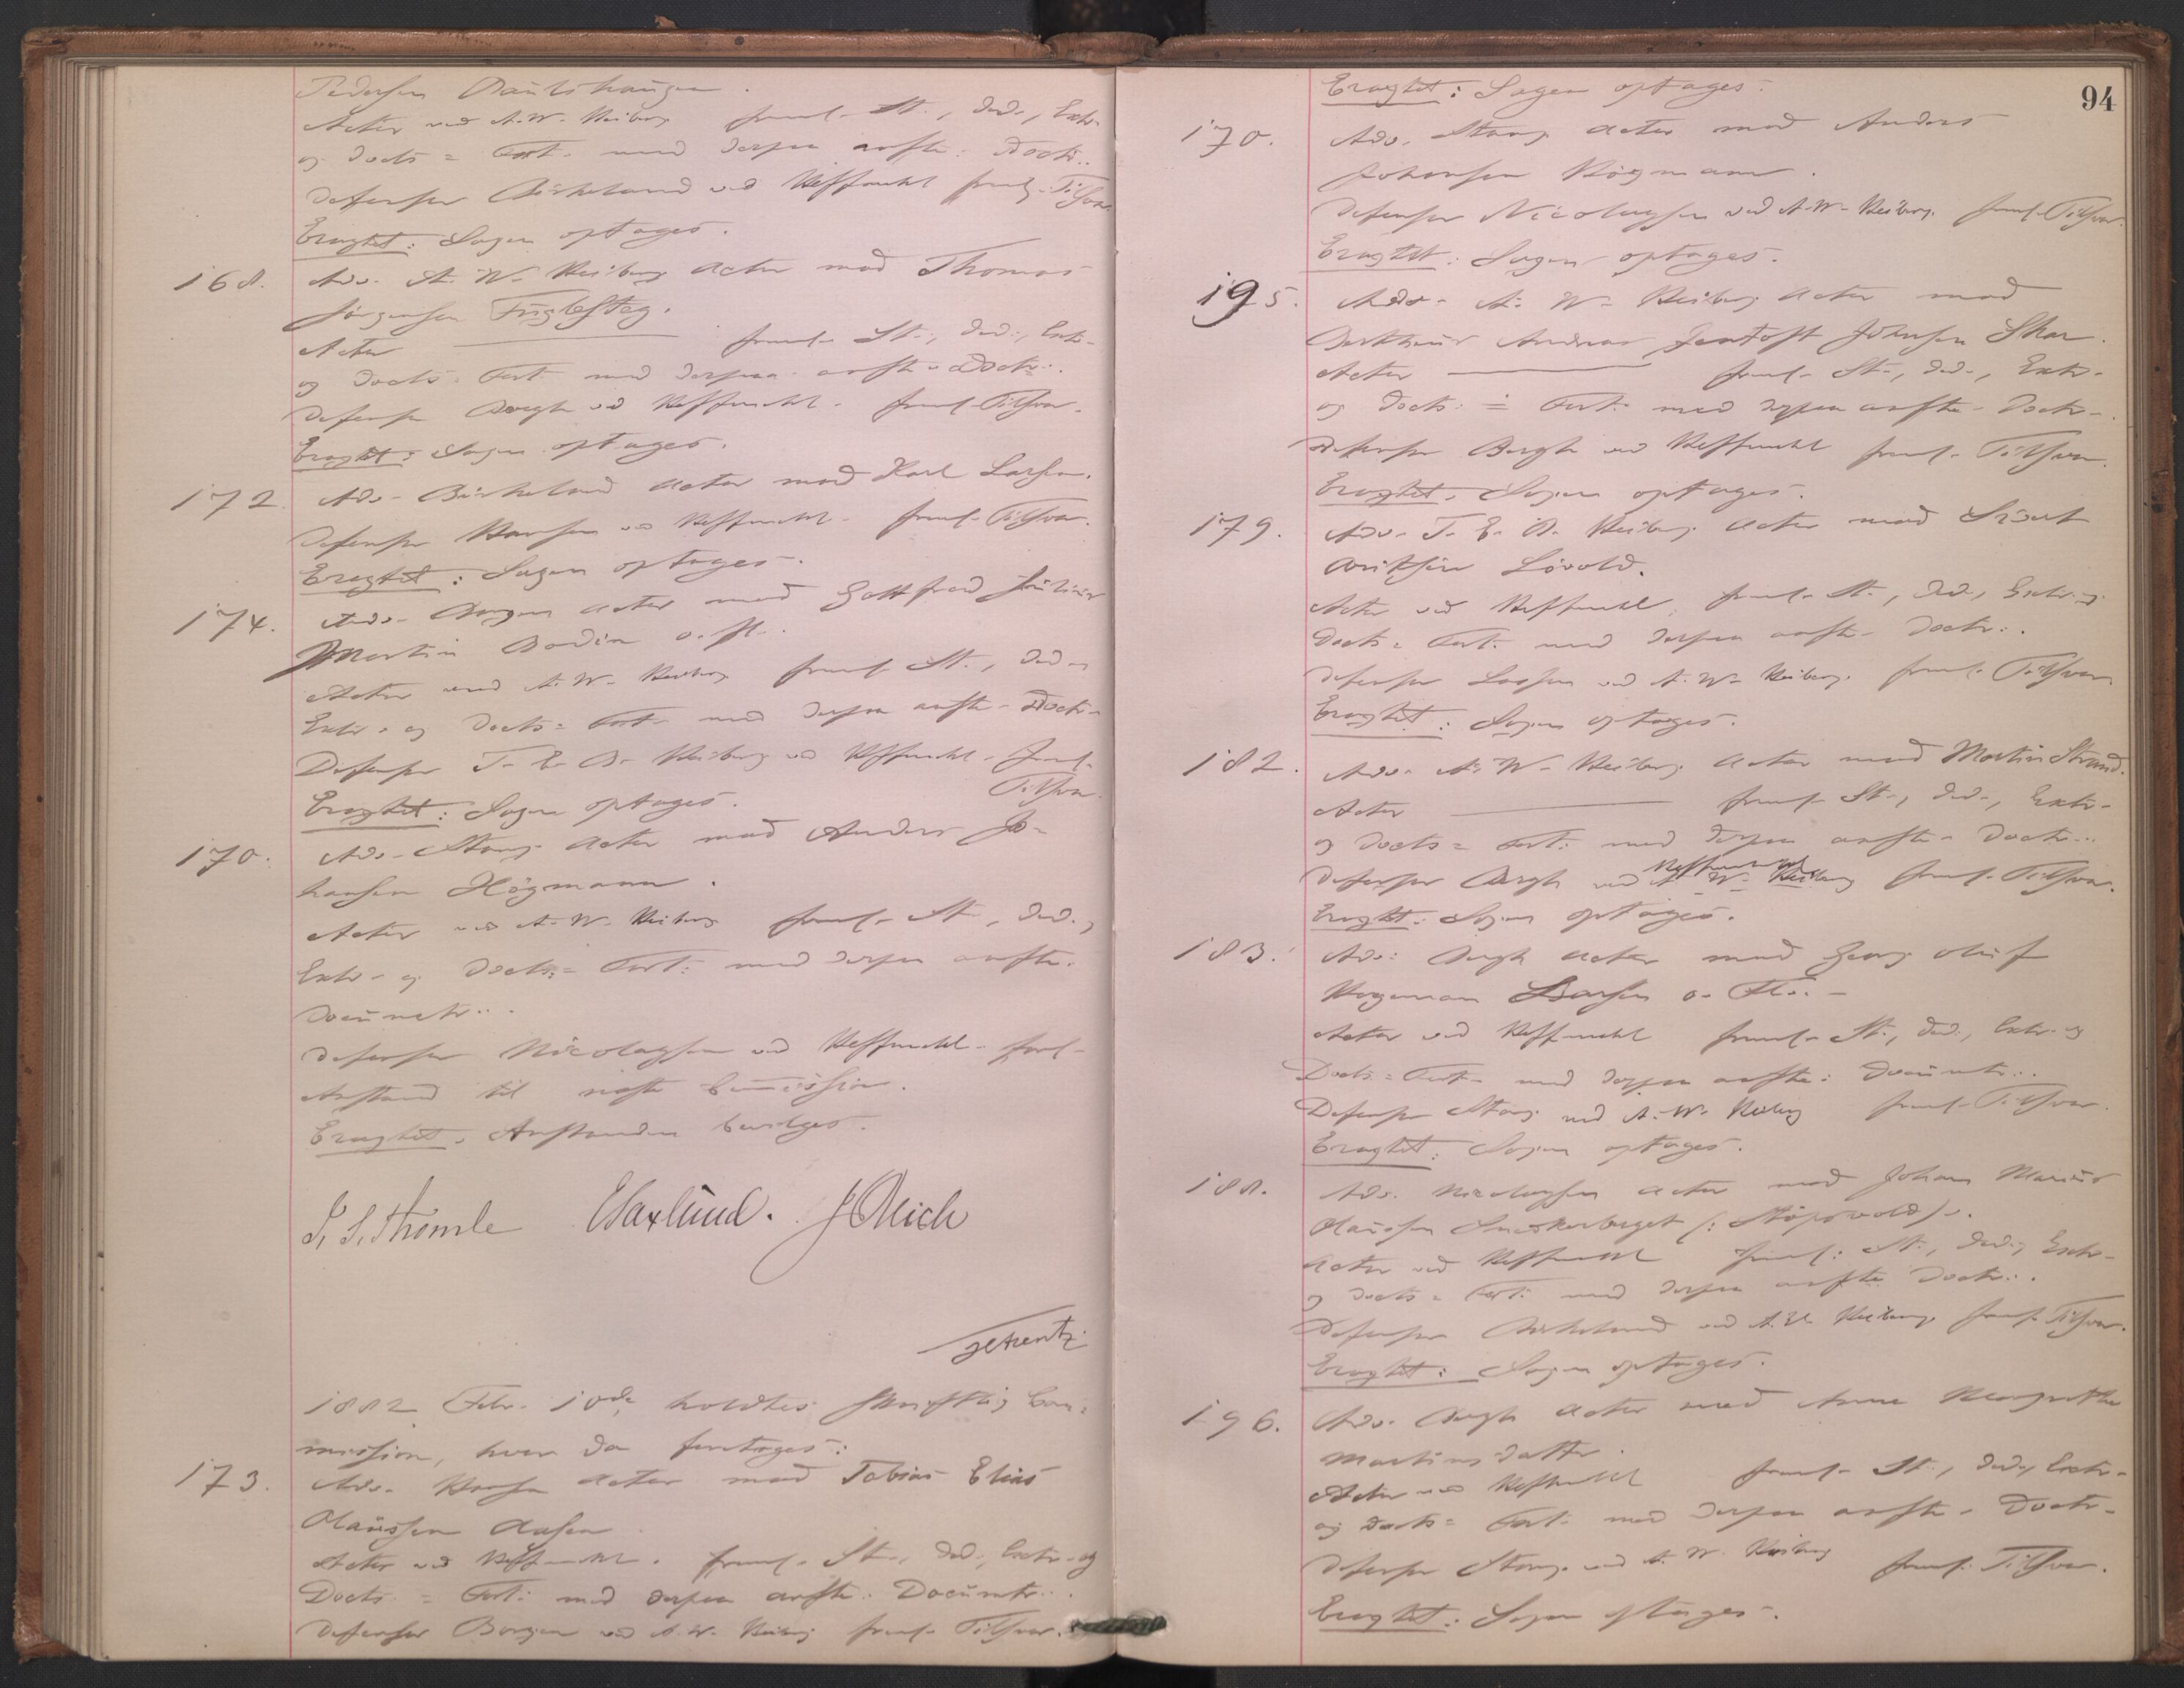 Pedersen
Actor ved A. W. Heiberg freml. St., Ded., Extr.
og Docts = Cert. med derpaa anfte. Doctr..
Defensor Birkeland ved Keffmehl freml. Tilsvar.
Eragtet: Sagen optages.
168. Adv. A. W. Heiberg Actor mod Thomas
Jørgensen Fuglesteg.
Actor freml. St., Ded., Extr.
og Docts = Cert. med derpaa anfte. Doctr..
Defensor Bergh ved Keffmehl. freml. Tilsvar.
Eragtet: Sagen optages.
172. Adv. Birkeland Actor mod Karl Larsen.
Defensor Hansen ved Keffmehl. freml. Tilsvar.
Eragtet: Sagen optages.
174. Adv. Borgen Actor mod Gottfred Julius
Martin Bodin o. fl.
Actor ved A. W. Heiberg freml. St., Ded.,
Extr. og Docts = Cert. med derpaa anfte. Doctr.
Defensor T. E. B. Heiberg ved Keffmehl. freml.
Tilsvar.
Eragtet: Sagen optages.
170. Adv. Stang Actor mod Anders Jo-
hansen Högmann.
Actor ved A. W. Heiberg freml. St., Ded.,
Extr. og Docts = Cert. med derpaa anfte.
Documtr..
Defensor Nicolaysen ved Keffmehl. forl.
Anstand til næste Commission.
Eragtet. Anstanden bevilges.
J. S. Thomle E Saxlund. J Blich
1882 Febr. 10de holdtes skriftlig Com-
mission, hvor da foretoges:
173. Adv. Hansen Actor mod Tobias Elias
Olaussen Aasen
Actor ved Keffmehl. freml. St., Ded., Extr. og
Docts = Cert. med derpaa anfte. Documtr..
Defensor Borgen ved A. W. Heiberg freml. Tilsvar.
94
Eragtet: Sagen optages.
170. Adv. Stang Actor mod Anders
Johansen Högmann.
Defensor Nicolaysen ved A. W. Heiberg. freml. Tilsvar.
Eragtet: Sagen optages.
195. Adv. A. W. Heiberg Actor mod
Andreas Jentoft Johnsen Skar.
Actor freml. St., Ded., Extr.
og Docts = Cert. med derpaa anfte. Doctr..
Defensor Bergh ved Keffmehl freml. Tilsvar.
Eragtet. Sagen optages.
179. Adv. T. E. B. Heiberg Actor mod Sivert
Løvold.
Actor ved Keffmehl, freml. St., Ded., Extr. og
Docts = Cert. med derpaa anfte. Doctr..
Defensor Lassen ved A. W. Heiberg. freml. Tilsvar.
Eragtet: Sagen optages.
182. Adv. A. W. Heiberg Actor mod Martin Strand.
Actor freml. St., Ded., Extr.
og Docts = Cert. med derpaa anfte. Doctr..
Keffmehl
Defensor Bergh ved A. W. Heiberg freml. Tilsvar.
Eragtet: Sagen optages.
183. Adv. Bergh Actor mod Georg Oluf
Hegemann Larsen o. Fl. -
Actor ved Keffmehl freml. St., Ded., Extr. og
Docts = Cert. med derpaa anfte. Documtr..
Defensor Stang ved A. W. Heiberg freml. Tilsvar.
Eragtet: Sagen optages.
188. Adv. Nicolaysen Actor mod Johan Marius
Olaussen
Actor ved Keffmehl freml. St., Ded., Extr.
og Docts = Cert. med derpaa anfte Doctr..
Defensor Birkeland ved A. W. Heiberg. freml. Tilsvar.
Eragtet: Sagen optages.
196. Adv. Bergh Actor mod Anne Margrethe
Martinsdatter.
Actor ved Keffmehl freml. St., Ded., Extr.
og Docts = Cert. med derpaa anfte. Doctr.
Defensor Stang. ved A. W. Heiberg freml. Tilsvar.
Eragtet: Sagen optages.